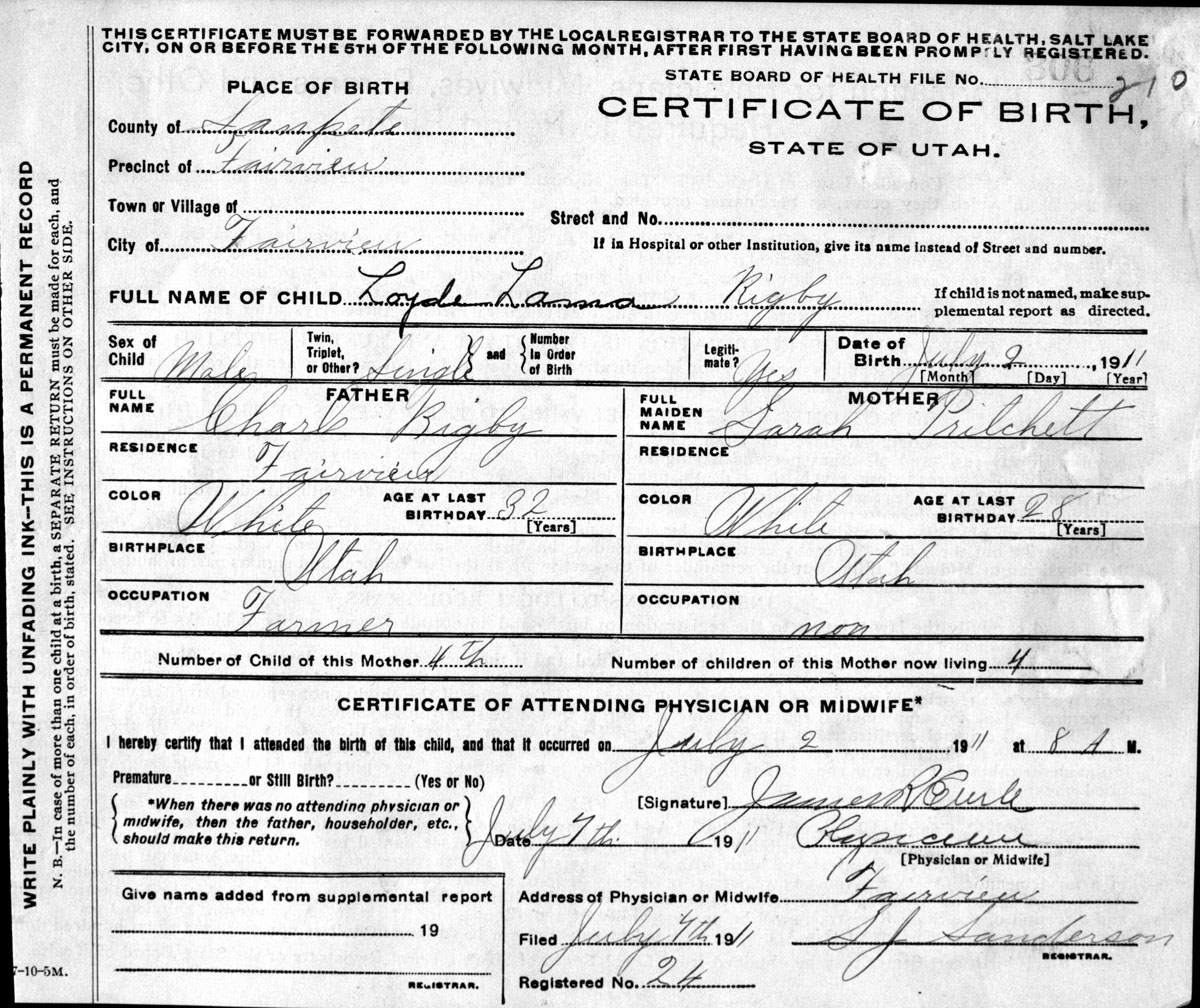 THIS CERTIFICATE MUST BE FORWARDED BY THE LOCALREGISTRAR TO THE STATE BOARD OF HEALTH, SALT LAKE
CITY, ON OR BEFORE THE 5TH OF THE FOLLOWING MONTH, AFTER FIRST HAVING BEEN PROMPTLY REGISTERED.
STATE BOARD OF HEALTH FILE No. 210
PLACE OF BIRTH
CERTIFICATE OF BIRTH,
STATE OF UTAH.
County of Sanpete
Precinct of Fairview
Town or Village of
Street and No.
City of Fairview
If in Hospital or other Institution, give its name instead of Street and number.
FULL NAME OF CHILD Loyde Rigby
If child is not named, make sup-
plemental report as directed.
Sex of Child Male
Twin, Triplet, or Other? Single
and Number In Order of Birth
Legiti-mate? Yes
Date of Birth July 2, 1911
[Month] [Day] [Year]
FATHER
FULL NAME Charls Rigby
MOTHER
FULL MAIDEN NAME Sarah Pritchett
RESIDENCE Fairview
RESIDENCE
COLOR White AGE AT LAST BIRTHDAY 32 [Years]
COLOR White AGE AT LAST BIRTHDAY 28 [Years]
BIRTHPLACE Utah
BIRTHPLACE Utah
OCCUPATION Farmer
OCCUPATION non
Number of Child of this Mother 4th
Number of children of this Mother now living 4
CERTIFICATE OF ATTENDING PHYSICIAN OR MIDWIFE*
I hereby certify that I attended the birth of this child, and that it occurred on July 2 1911 at 8 A M.
Premature or Still Birth? (Yes or No)
*When there was no attending physician or
midwife, then the father, householder, etc.,
should make this return.
[Signature] James
Date July 7th 1911
[Physician or Midwife]
Give name added from supplemental report
19
REGISTRAR.
Address of Physician or Midwife Fairview
Filed July 7th 1911 S J Sanderson
REGISTRAR.
Registered No. 24
7-10-5M.
WRITE PLAINLY WITH UNFADING INK—THIS IS A PERMANENT RECORD
N. B.—In case of more than one child at a birth, a SEPARATE RETURN must be made for each, and
the number of each, in order of birth, stated. SEE INSTRUCTIONS ON OTHER SIDE.